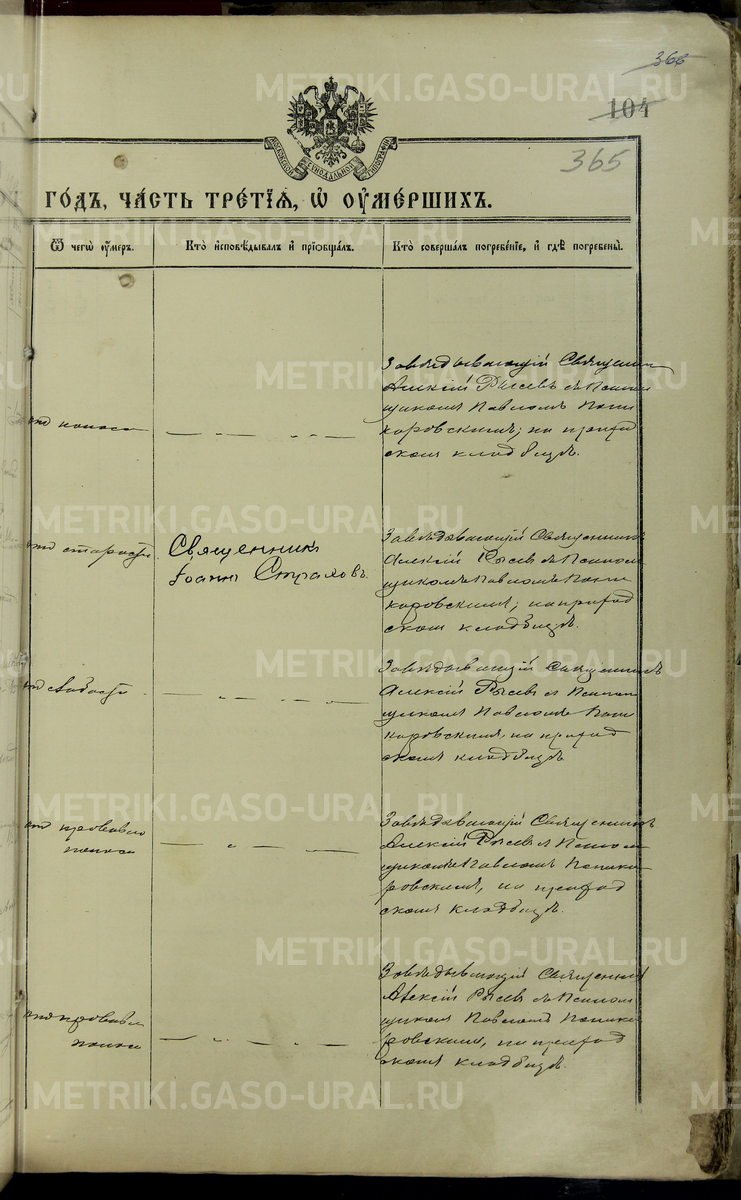 366
104
365
МОСКОВСКОЙ СѴНОДАЛЬНОЙ ТИПОГРАФІИ
ГО́ДЪ, ЧА́СТЬ ТРЕ́ТІѦ, Ѡ҆ ОУ҆МЕ́РШИХЪ.
Ѿ чегѡ̀ оу҆́меръ.
Кто̀ и҆сповѣ́дывалъ и҆ прїѻбща́лъ.
Кто̀ соверша́лъ погребе́нїе, и҆ гдѣ̀ погребены̀.
отъ поноса
Завѣдывающій Священн
Алексій Рысевъ съ Псалом
щикомъ Павломъ
на приход
скомъ кладбищѣ.
отъ старости
Священникъ
Іоаннъ Страховъ.
Завѣдывающій Священникъ
Алексій Рысевъ съ Псалом
щикомъ Павломъ
на приход
скомъ кладбищѣ.
отъ слабости
Завѣдывающій Священникъ
Алексій Рысевъ съ Псалом
щикомъ Павломъ
на приход
скомъ кладбищѣ
отъ кроваваго
поноса
Завѣдывающій Священникъ
Алексій Рысевъ съ Псалом
щикомъ Павломъ
ровскимъ, на приход
скомъ кладбищѣ.
отъ кровав
поноса
Завѣдывающій Священникъ
Алексій Рысевъ съ Псалом
щикомъ Павломъ
ровскимъ, на приход
скомъ кладбищѣ.
METRIKI.GASO-URAL.RU